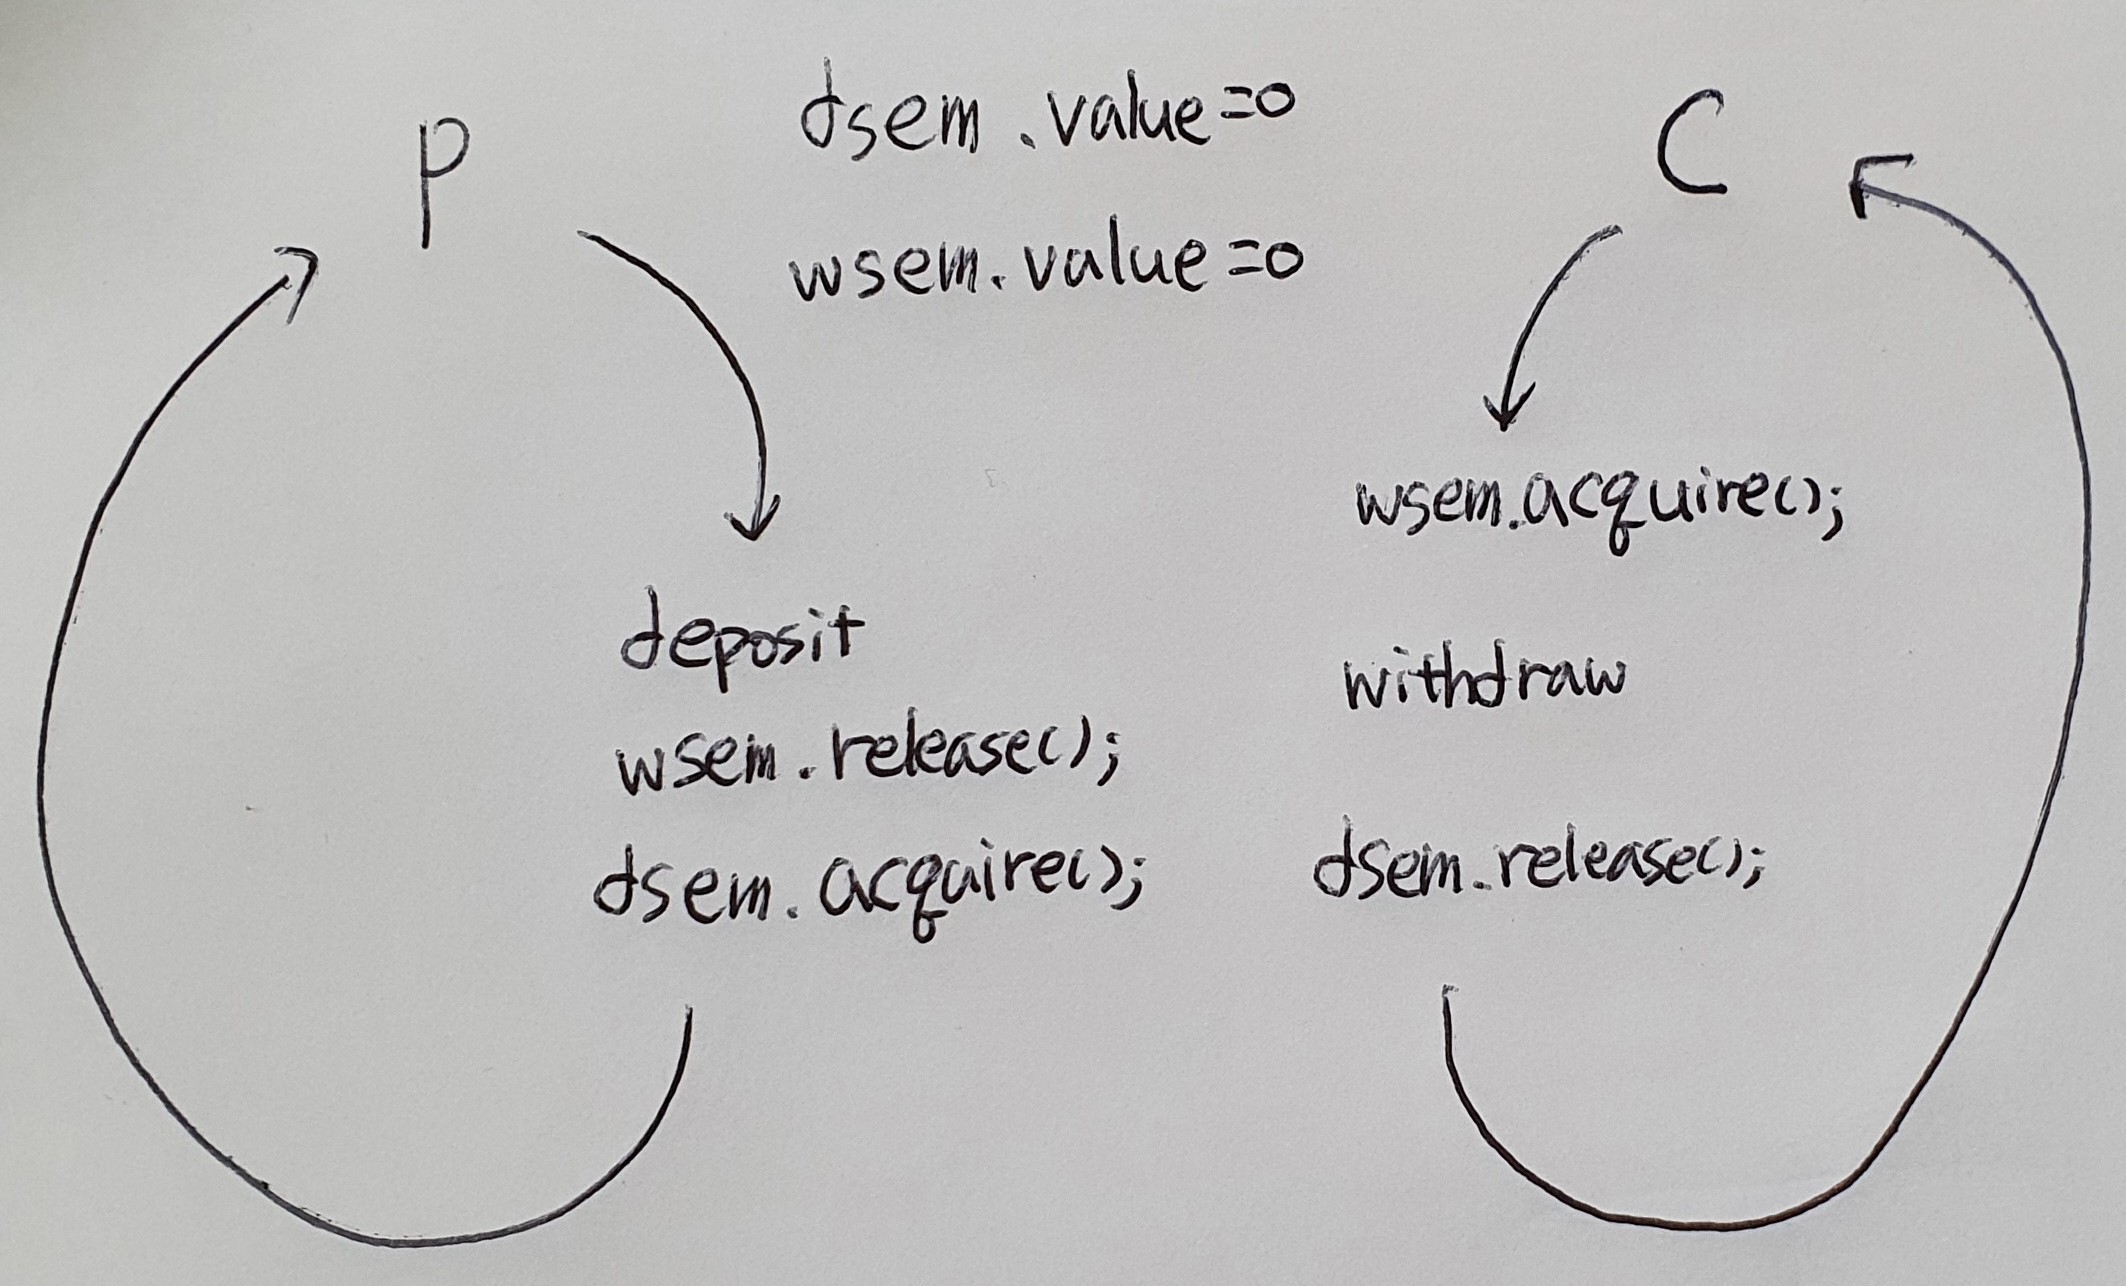 P
dsem.value=0
wsem.value=0
C
deposit
wsem.release();
dsem.acquire();
wsem.acquire();
withdraw
dsem.release();